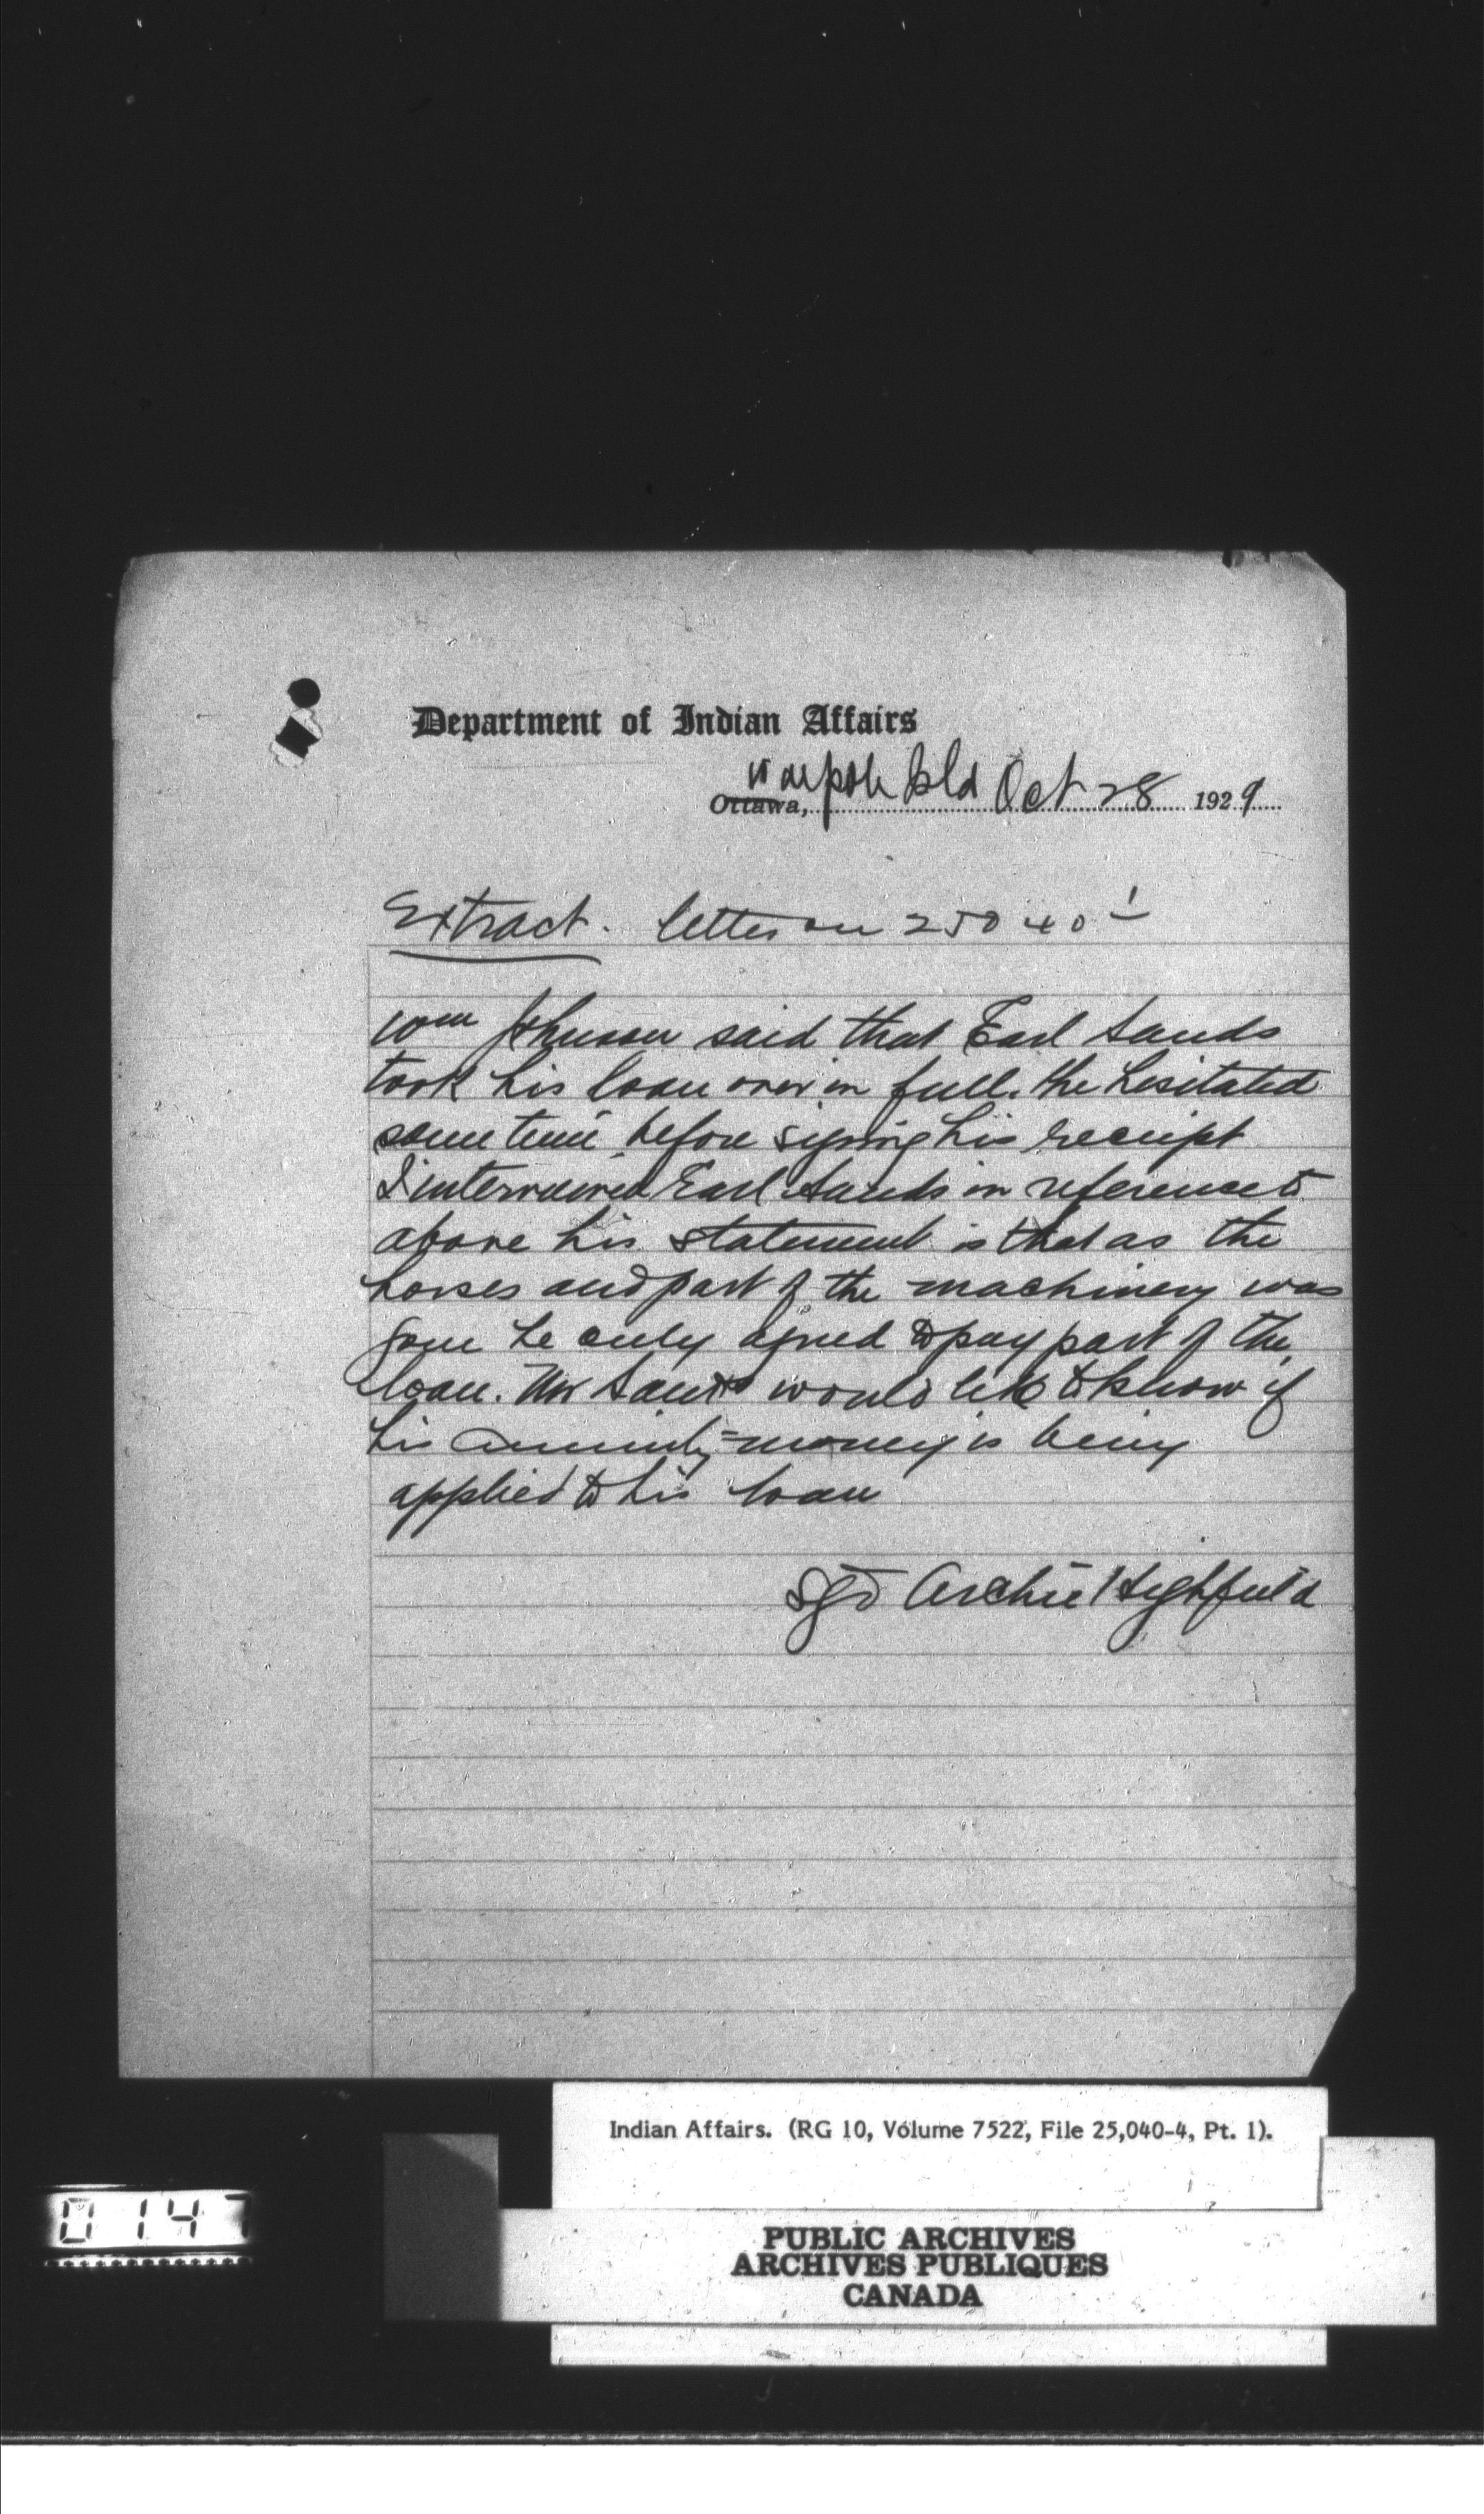 Department of Indian Affairs
Walpole Isld Oct 28 1929
Ottawa,
Extract. letter on 25040-1
Wm Johnson said that Earl Sands
took his loan over in full. He hesitated
some time before signing his receipt
I interviewed Earl Sands in reference to
above his statement is that as the
horses and part of the machinery was
gone he only agreed to pay part of the
loan. Mr Sands would like to know if
his annuity money is being
applied to his loan
Sgd Archie Highfield
Indian Affairs. (RG 10, Volume 7522, File 25,040-4, Pt. 1).
0147
PUBLIC ARCHIVES
ARCHIVES PUBLIQUES
CANADA